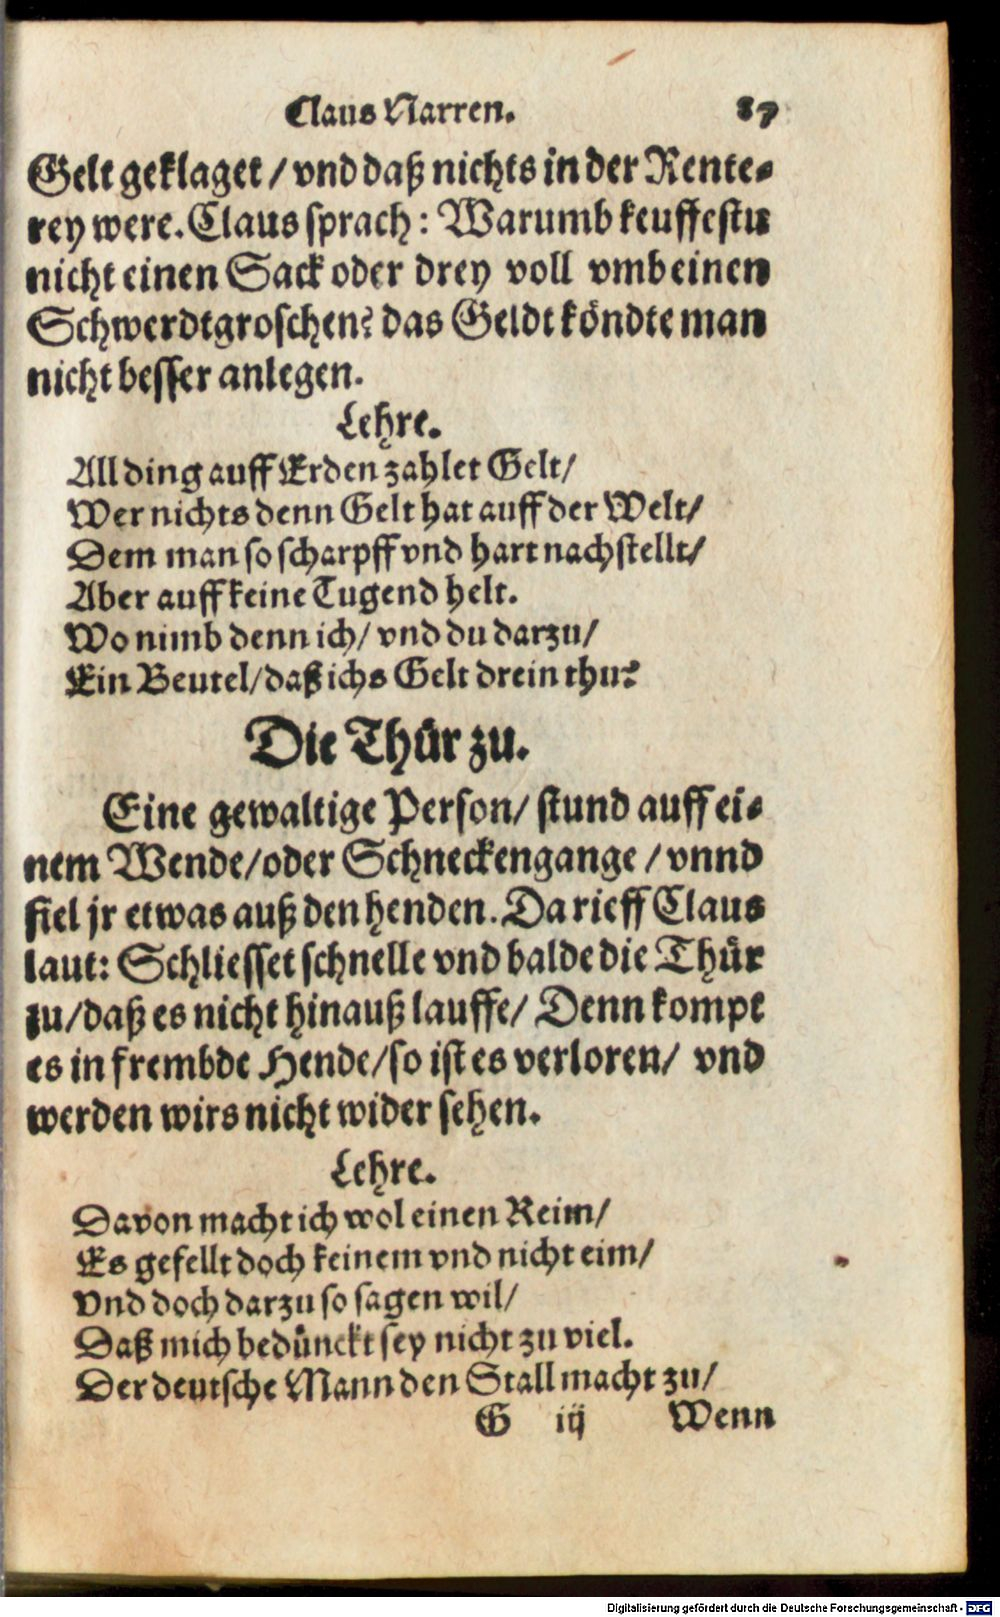 Claus Narren. 87
Gelt geklaget / vnd daß nichts in der Rente-
rey were. Claus sprach: Warumb keuffestu
nicht einen Sack oder drey voll vmb einen
Schwerdtgroschen? das Geldt köndte man
nicht besser anlegen.
Lehre.
All ding auff Erden zahlet Gelt/
Wer nichts denn Gelt hat auff der Welt/
Dem man so scharpff vnd hart nachstellt/
Aber auff keine Tugend helt.
Wo nimb denn ich/ vnd du darzu/
Ein Beutel/ daß ichs Gelt drein thu?
Die Thür zu.
Eine gewaltige Person/ stund auff ei-
nem Wende/ oder Schneckengange / vnnd
fiel jr etwas auß den henden. Da rieff Claus
laut: Schliesset schnelle vnd balde die Thür
zu/ daß es nicht hinauß lauffe/ Denn kompt
es in frembde Hende/ so ist es verloren/ vnd
werden wirs nicht wider sehen.
Lehre.
Davon macht ich wol einen Reim/
Es gefellt doch keinem vnd nicht eim/
Vnd doch darzu so sagen wil/
Daß mich bedünckt sey nicht zu viel.
Der deutsche Mann den Stall macht zu/
G iij Wenn
Digitalisierung gefördert durch die Deutsche Forschungsgemeinschaft - DFG